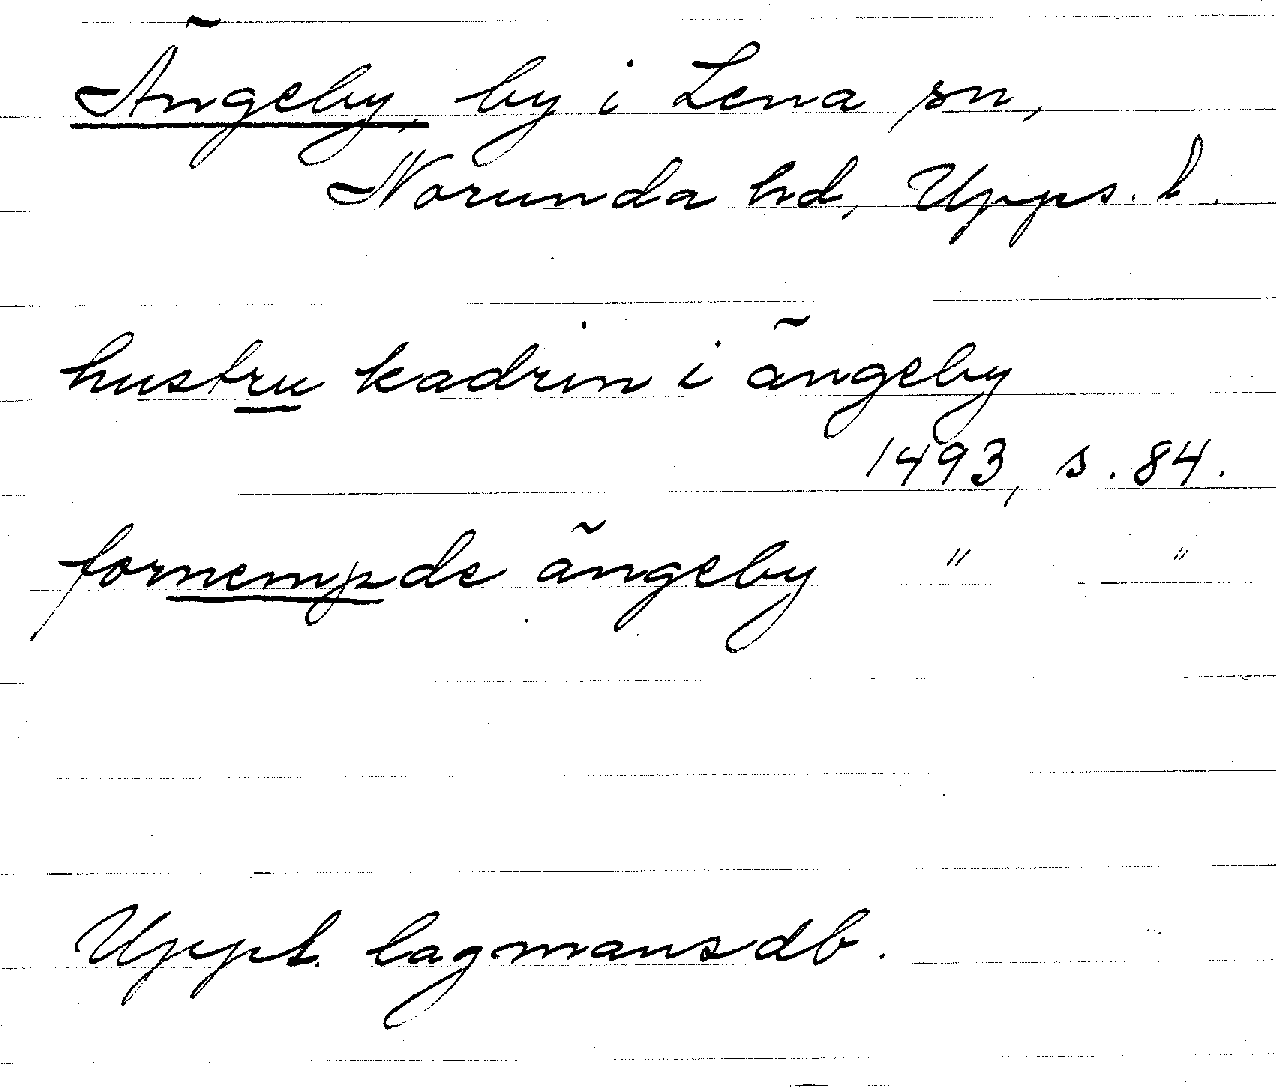 Ängeby, by i Lena sn,
Norunda hd, Upps. l.
hustru kadrin i ängeby
1493, s. 84.
fornempde ängeby " "
Uppl. lagmansdb.